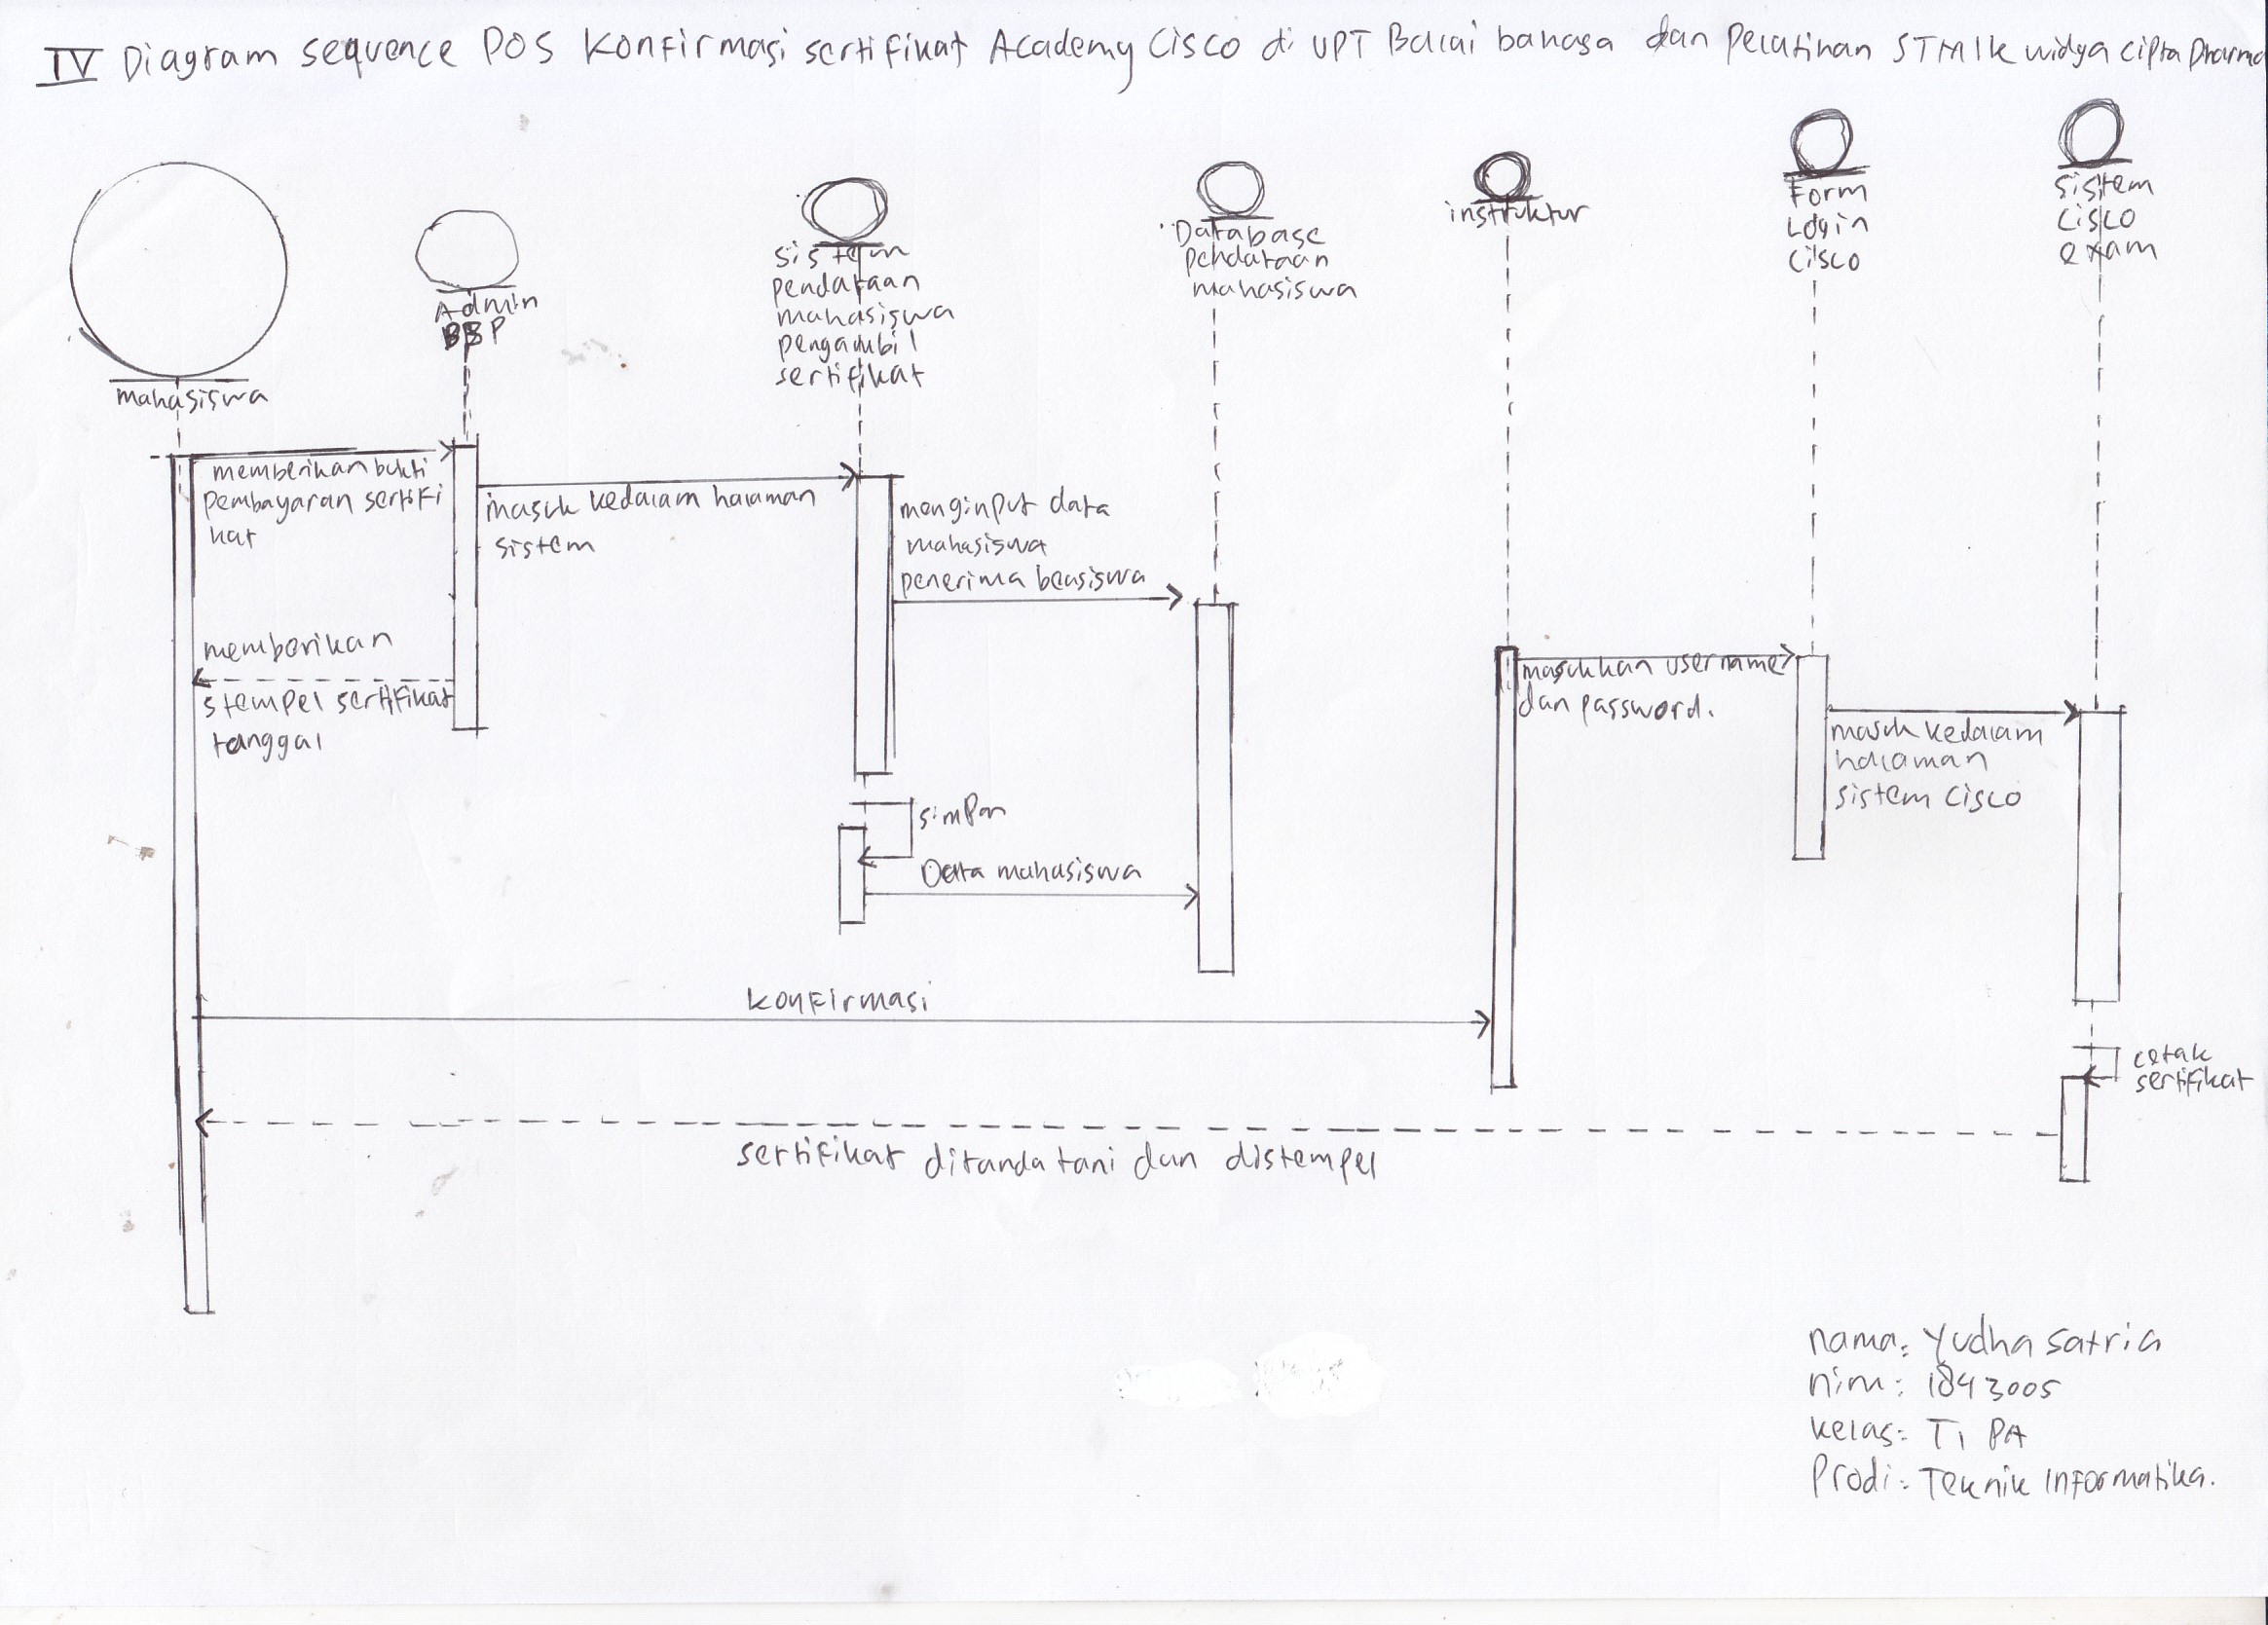 IV Diagram sequence POS Konfirmasi sertifikat Academy Cisco di UPT Balai bahasa dan Pelatihan STMIK widya cipta Dharma
mahasiswa
Admin
BBP
sistem
pendataan
mahasiswa
pengambil
sertifikat
Database
pendataan
mahasiswa
instruktur
Form
Login
Cisco
sistem
Cisco
exam
memberikan bukti
pembayaran sertifi
kat
masuk kedalam halaman
sistem
menginput data
mahasiswa
penerima beasiswa
memberikan
stempel sertifikat
tanggal
masukkan username
dan password.
masuk kedalam
halaman
sistem cisco
simpan
Data mahasiswa
Konfirmasi
cetak
sertifikat
sertifikat ditanda tani dan distempel
nama: Yudha Satria
nim: 1843005
kelas: TI PA
Prodi: Teknik Informatika.